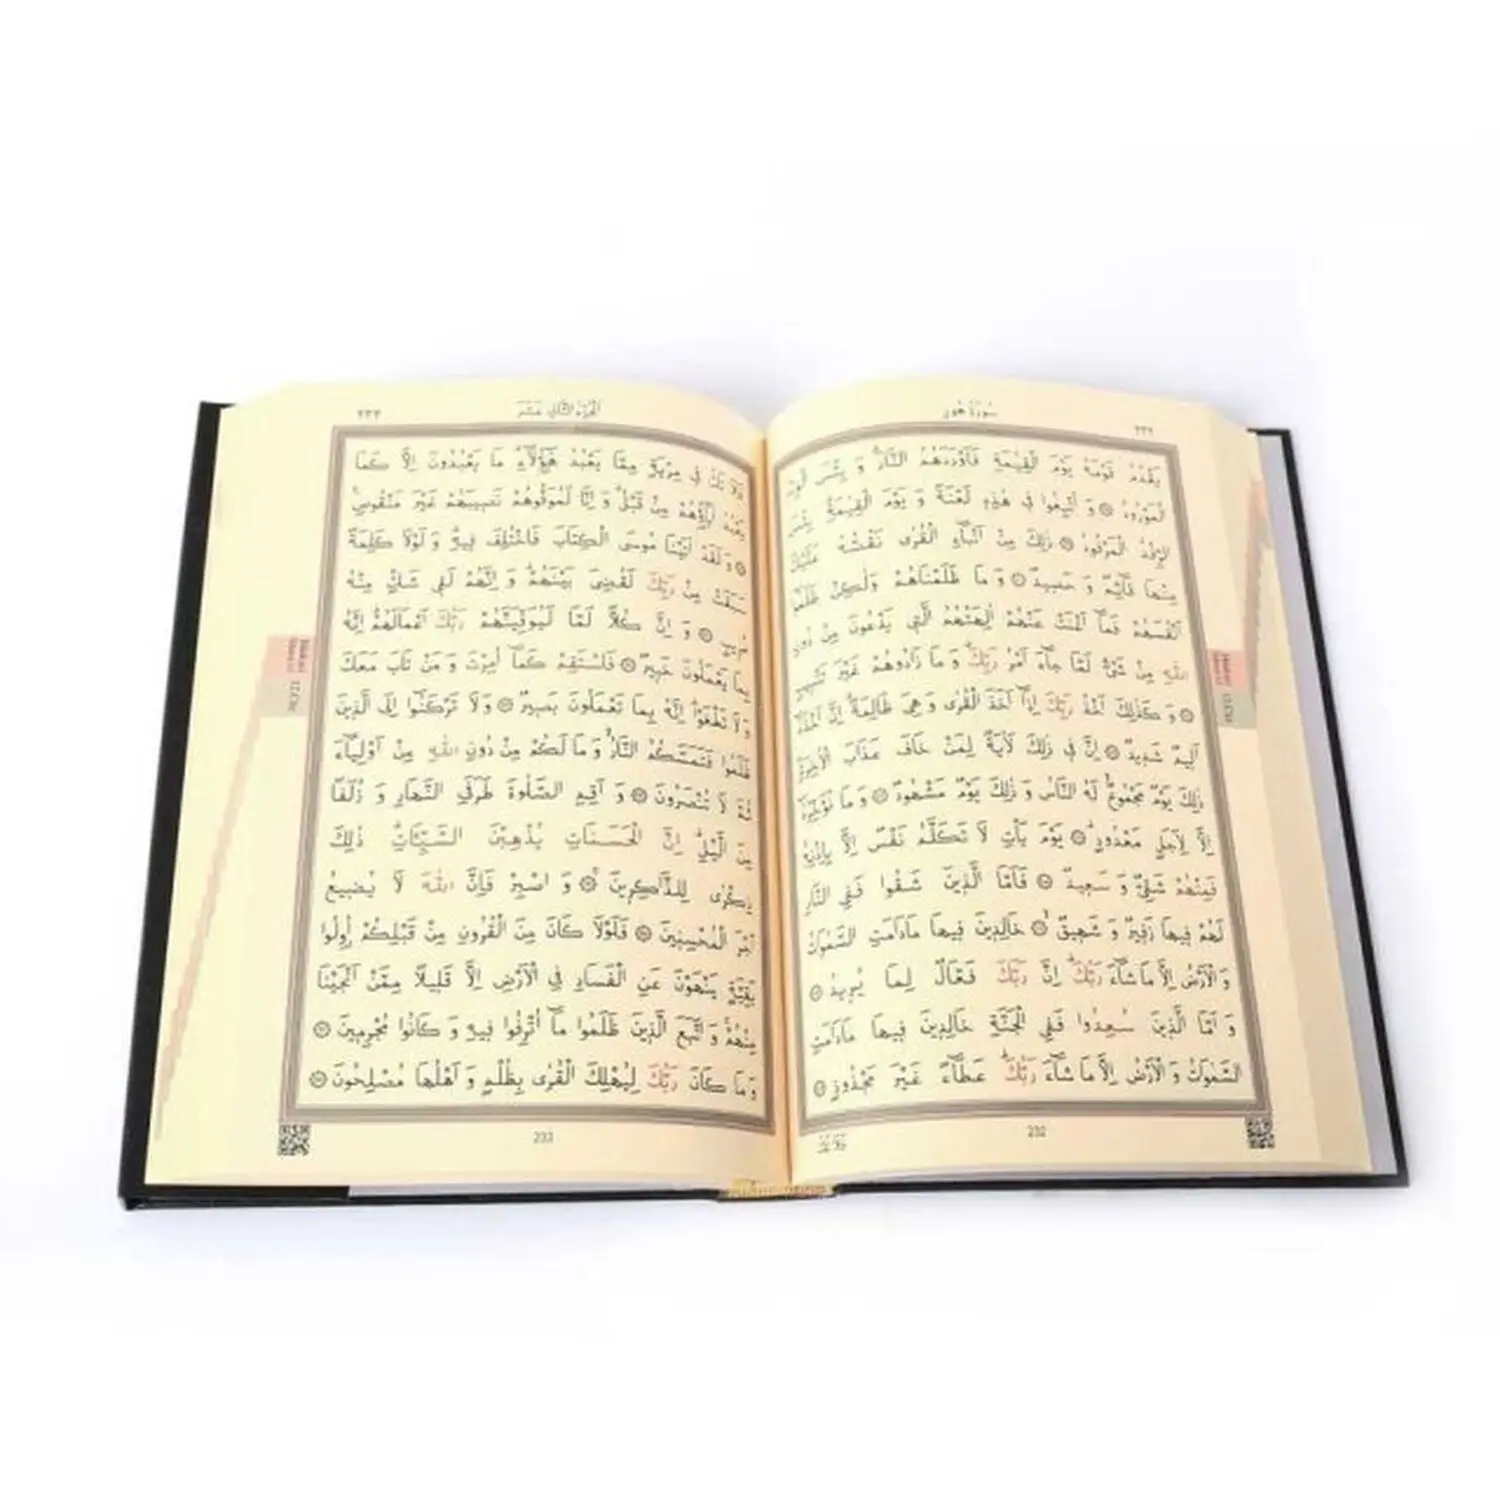 ٢٣٢
سُورَةُ هُودٍ
يَقْدُمُ قَوْمَهُ يَوْمَ الْقِيٰمَةِ فَاَوْرَدَهُمُ النَّارَۜ وَ بِئْسَ الْوِرْدُ
الْمَوْرُودُ ۝ وَ اُتْبِعُوا فٖي هٰذِهٖ لَعْنَةً وَ يَوْمَ الْقِيٰمَةِۜ بِئْسَ
الرِّفْدُ الْمَرْفُودُ ۝ ذٰلِكَ مِنْ اَنْبَٓاءِ الْقُرٰى نَقُصُّهُ عَلَيْكَ
مِنْهَا قَٓائِمٌ وَ حَصٖيدٌ ۝ وَ مَا ظَلَمْنَاهُمْ وَلٰكِنْ ظَلَمُٓوا
اَنْفُسَهُمْ فَمَٓا اَغْنَتْ عَنْهُمْ اٰلِهَتُهُمُ الَّتٖي يَدْعُونَ مِنْ دُونِ
اللّٰهِ مِنْ شَيْءٍ لَمَّا جَٓاءَ اَمْرُ رَبِّكَۜ وَ مَا زَادُوهُمْ غَيْرَ تَتْبٖيبٍ
۝ وَ كَذٰلِكَ اَخْذُ رَبِّكَ اِذَٓا اَخَذَ الْقُرٰى وَ هِيَ ظَالِمَةٌۜ اِنَّ اَخْذَهُٓ
اَلٖيمٌ شَدٖيدٌ ۝ اِنَّ فٖي ذٰلِكَ لَاٰيَةً لِمَنْ خَافَ عَذَابَ الْاٰخِرَةِۜ
ذٰلِكَ يَوْمٌ مَجْمُوعٌۙ لَهُ النَّاسُ وَ ذٰلِكَ يَوْمٌ مَشْهُودٌ ۝ وَ مَا نُؤَخِّرُهُٓ
اِلَّا لِاَجَلٍ مَعْدُودٍۜ ۝ يَوْمَ يَاْتِ لَا تَكَلَّمُ نَفْسٌ اِلَّا بِاِذْنِهٖۚ
فَمِنْهُمْ شَقِيٌّ وَ سَعٖيدٌ ۝ فَاَمَّا الَّذٖينَ شَقُوا فَفِي النَّارِ
لَهُمْ فٖيهَا زَفٖيرٌ وَ شَهٖيقٌۙ ۝ خَالِدٖينَ فٖيهَا مَا دَامَتِ السَّمٰوَاتُ
وَ الْاَرْضُ اِلَّا مَا شَٓاءَ رَبُّكَۜ اِنَّ رَبَّكَ فَعَّالٌ لِمَا يُرٖيدُ ۝
وَ اَمَّا الَّذٖينَ سُعِدُوا فَفِي الْجَنَّةِ خَالِدٖينَ فٖيهَا مَا دَامَتِ
السَّمٰوَاتُ وَ الْاَرْضُ اِلَّا مَا شَٓاءَ رَبُّكَۜ عَطَٓاءً غَيْرَ مَجْذُوذٍ ۝
232
٢٣٣
اَلْجُزْءُ الثَّانٖي عَشَرَ
فَلَا تَكُ فٖي مِرْيَةٍ مِمَّا يَعْبُدُ هٰٓؤُلَٓاءِۜ مَا يَعْبُدُونَ اِلَّا كَمَا
يَعْبُدُ اٰبَٓاؤُ۬هُمْ مِنْ قَبْلُۜ وَ اِنَّا لَمُوَفُّوهُمْ نَصٖيبَهُمْ غَيْرَ مَنْقُوصٍ۟
۝ وَ لَقَدْ اٰتَيْنَا مُوسَى الْكِتَابَ فَاخْتُلِفَ فٖيهِۜ وَ لَوْلَا كَلِمَةٌ
سَبَقَتْ مِنْ رَبِّكَ لَقُضِيَ بَيْنَهُمْۜ وَ اِنَّهُمْ لَفٖي شَكٍّ مِنْهُ
مُرٖيبٍ ۝ وَ اِنَّ كُلًّا لَمَّا لَيُوَفِّيَنَّهُمْ رَبُّكَ اَعْمَالَهُمْۜ اِنَّهُ
بِمَا يَعْمَلُونَ خَبٖيرٌ ۝ فَاسْتَقِمْ كَمَٓا اُمِرْتَ وَ مَنْ تَابَ مَعَكَ
وَ لَا تَطْغَوْاۜ اِنَّهُ بِمَا تَعْمَلُونَ بَصٖيرٌ ۝ وَ لَا تَرْكَنُٓوا اِلَى الَّذٖينَ
ظَلَمُوا فَتَمَسَّكُمُ النَّارُۙ وَ مَا لَكُمْ مِنْ دُونِ اللّٰهِ مِنْ اَوْلِيَٓاءَ
ثُمَّ لَا تُنْصَرُونَ ۝ وَ اَقِمِ الصَّلٰوةَ طَرَفَيِ النَّهَارِ وَ زُلَفًا
مِنَ الَّيْلِۜ اِنَّ الْحَسَنَاتِ يُذْهِبْنَ السَّيِّـَٔاتِۜ ذٰلِكَ
ذِكْرٰى لِلذَّاكِرٖينَۚ ۝ وَ اصْبِرْ فَاِنَّ اللّٰهَ لَا يُضٖيعُ
اَجْرَ الْمُحْسِنٖينَ ۝ فَلَوْلَا كَانَ مِنَ الْقُرُونِ مِنْ قَبْلِكُمْ اُو۬لُوا
بَقِيَّةٍ يَنْهَوْنَ عَنِ الْفَسَادِ فِي الْاَرْضِ اِلَّا قَلٖيلًا مِمَّنْ اَنْجَيْنَا
مِنْهُمْۚ وَ اتَّبَعَ الَّذٖينَ ظَلَمُوا مَٓا اُتْرِفُوا فٖيهِ وَ كَانُوا مُجْرِمٖينَ ۝
وَ مَا كَانَ رَبُّكَ لِيُهْلِكَ الْقُرٰى بِظُلْمٍ وَ اَهْلُهَا مُصْلِحُونَ ۝
233